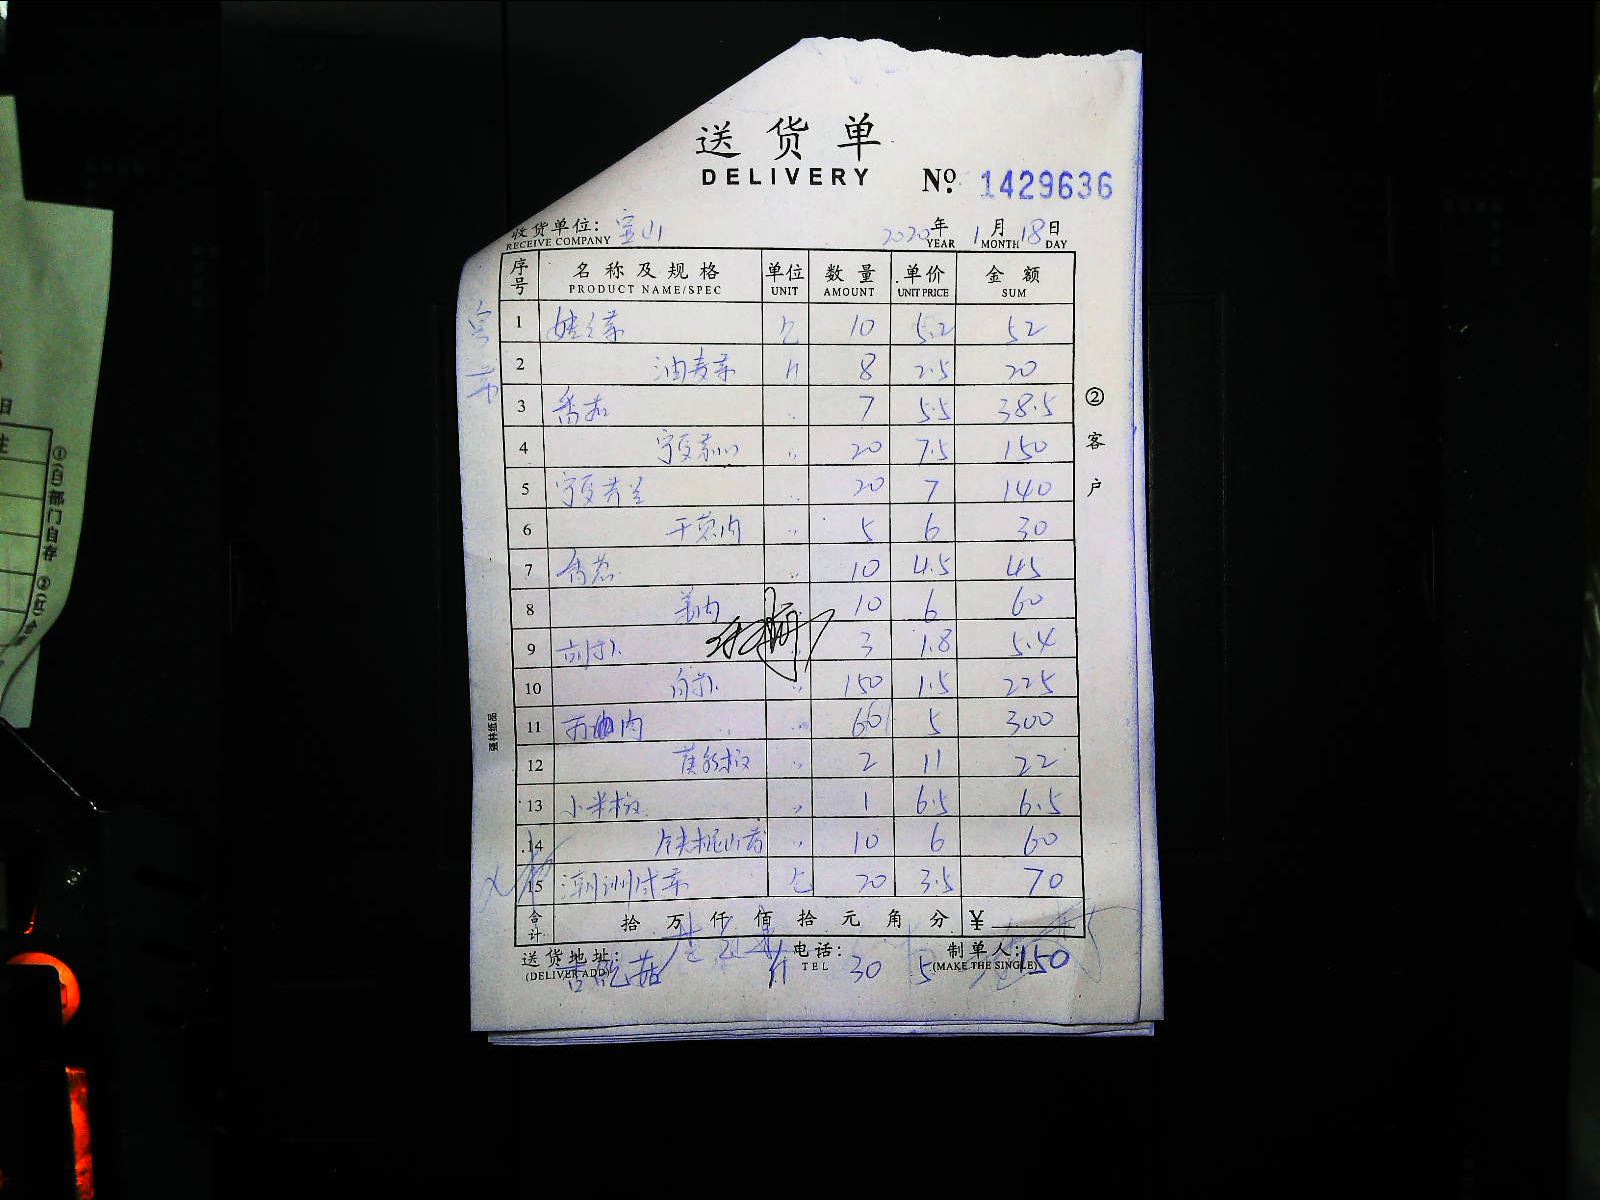 送货单
DELIVERY
№ 1429636
收货单位: 宝山 2020年 1月 18日
RECEIVE COMPANY YEAR MONTH DAY
序号 名称及规格 单位 数量 单价 金额
PRODUCT NAME/SPEC UNIT AMOUNT UNIT PRICE SUM
1 娃娃菜 10 5.2 52
2 油麦菜 〃 8 2.5 20
3 番茄 〃 7 5.5 38.5
4 宁夏菜心 〃 20 7.5 150
5 宁夏芥兰 〃 20 7 140
6 干葱肉 〃 5 6 30
7 香葱 〃 10 4.5 45
8 姜肉 〃 10 6 60
9 3 1.8 5.4
10 〃 150 1.5 225
11 〃 60 5 300
12 〃 2 11 22
13 小米椒 〃 1 6.5 6.5
14 铁棍山药 〃 10 6 60
15 潮州咸菜 20 3.5 70
合计 拾 万 仟 佰 拾 元 角 分 ¥
送货地址: 电话: 制单人:
(DELIVER ADD) TEL (MAKE THE SINGLE)
30 5 150
②客户
强林纸品
①(白)部门自存 ②(红)
日